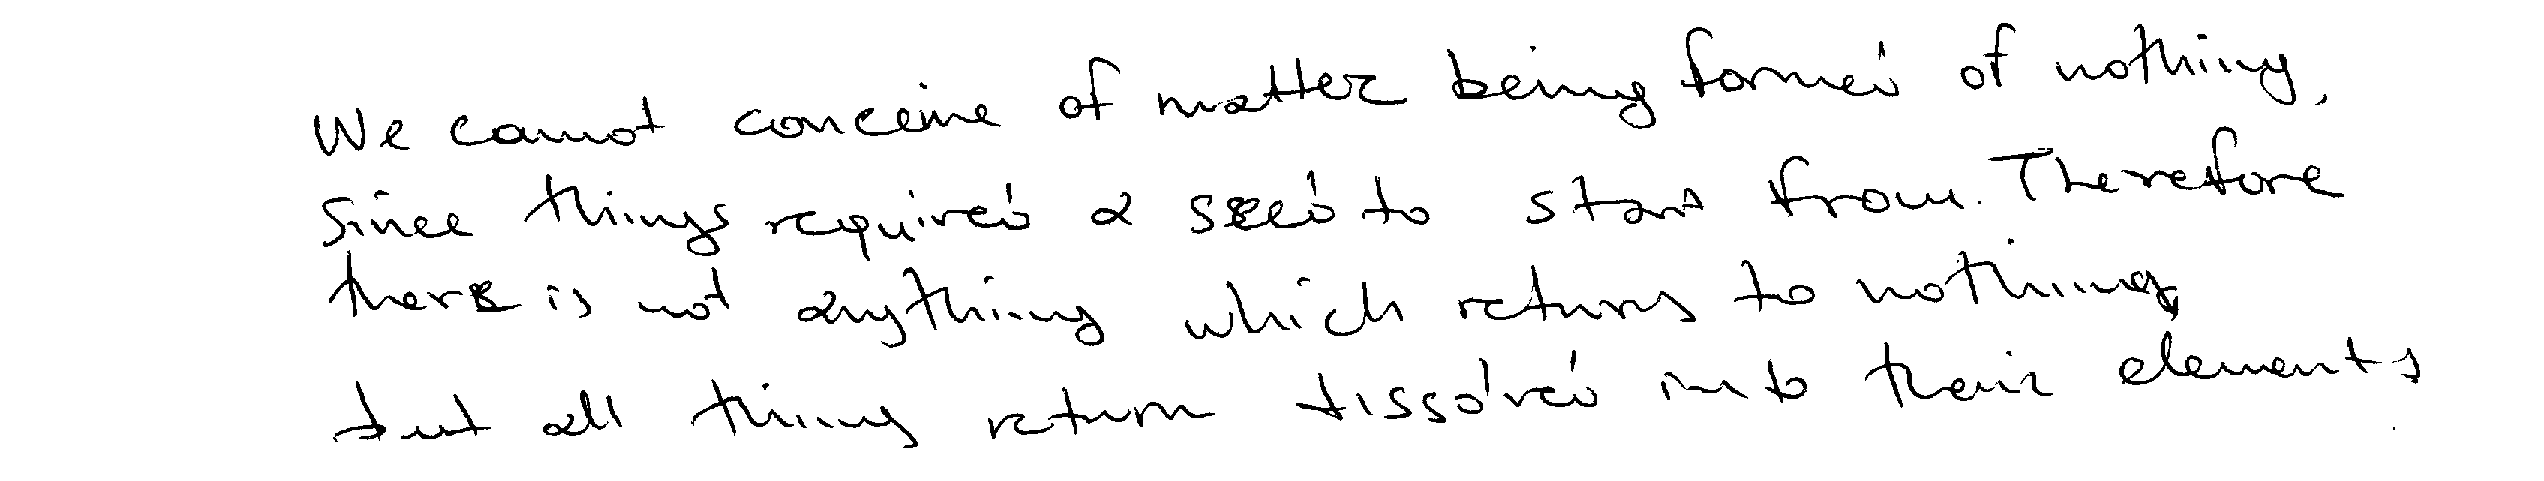 We cannot conceive of matter being formed of nothing,
since things required a seed to start from. Therefore
there is not anything which returns to nothing,
but all things return dissolved into their elements